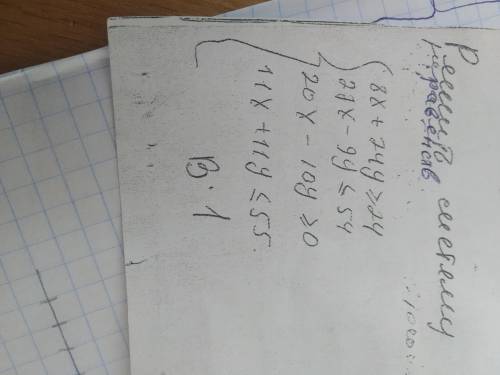 Решить систему
неравенств
8x + 24y ≥ 24
27x - 9y ≤ 54
20x - 10y ≥ 0
11x + 11y ≤ 55.
В. 1